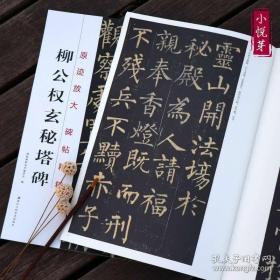 小悦芽
原迹放大 碑帖
柳公权玄秘塔碑
靈山開法場於
秘殿為人請福
親奉香燈既而刑
不殘兵不黷赤子
觀察處
孔夫子旧书网